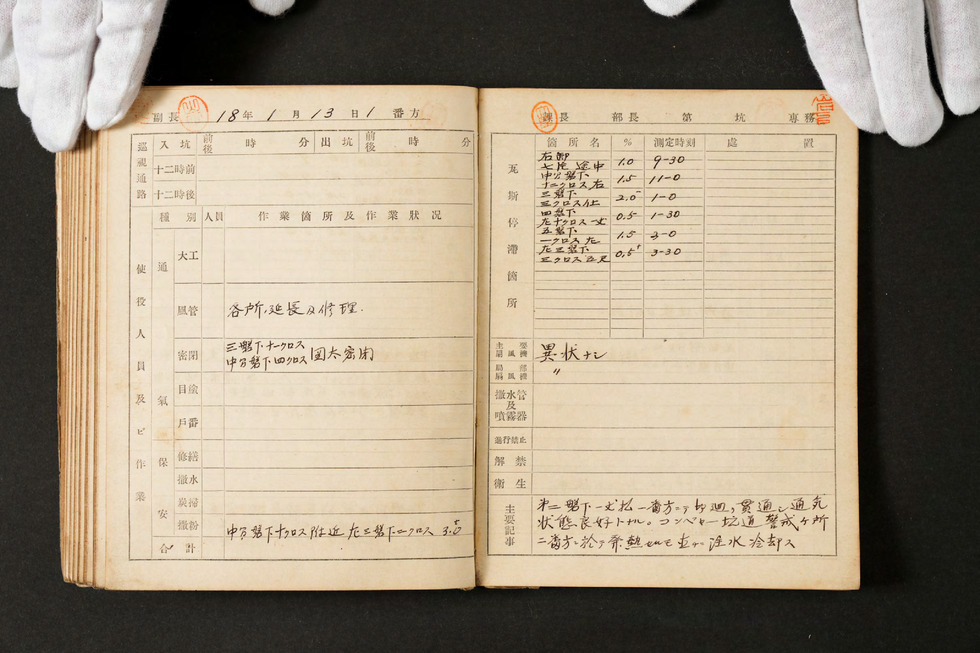 副長 18年1月13日1番方
巡視通路 入坑 前後 時 分 出坑 前後 時 分
十二時前
十二時後
種別 人員 作業箇所及作業状况
使役人員及ビ作業
通氣保安
大工
風管 各所延長及修理.
密閉 三盤下十一クロス
中分盤下四クロス 密閉
目塗
戸番
修繕
撒水
炭掃
撒粉 中分盤下十クロス附近 左三盤下二クロス 3.0
合計
課長 部長 第 坑 専務
瓦斯停滞箇所
箇所名 % 測定時刻 處置
右卸
七片途中 1.0 9-30
中分盤下
十二クロス右 1.5 11-0
三盤下
三クロス仕 2.0 1-0
四盤下
左十クロス 0.5 1-30
五盤下
一クロス左 1.5 2-0
左三盤下
三クロス 0.5 3-30
主要扇風機 異状ナシ
局部扇風機 〃
撒水管及噴霧器
通行禁止
解禁
衛生
主要記事
第二盤下 一番方ニテ 貫通シ通気
状態良好トナル。コンベヤー坑道警戒ヶ所
二番方ニ於テ発熱 直ニ注水冷却ス